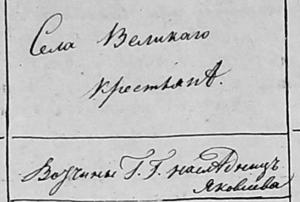 Села Великаго
крестьянѣ.
Вотчины Г. Г. наслѣдницъ
Яковлева